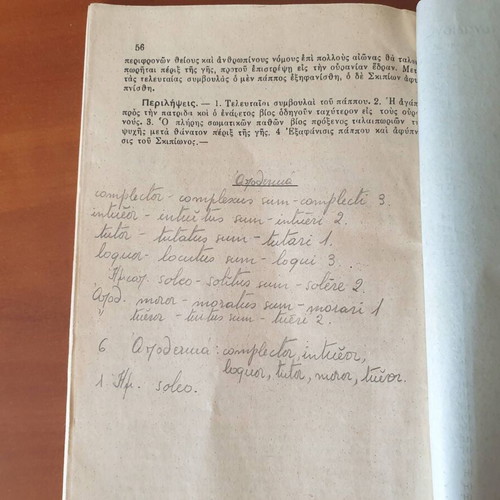 56
περιφρονῶν θείους καὶ ἀνθρωπίνους νόμους ἐπὶ πολλοὺς αἰῶνας θὰ ταλαι
πωρῆται πέριξ τῆς γῆς, προτοῦ ἐπιστρέψῃ εἰς τὴν οὐρανίαν ἕδραν. Μετ
τὰς τελευταίας συμβουλὰς ὁ μὲν πάππος ἐξηφανίσθη, ὁ δὲ Σκιπίων ἀφυ
πνίσθη.
Περιλήψεις. — 1. Τελευταῖαι συμβουλαὶ τοῦ πάππου. 2. Ἡ ἀγάπ
πρὸς τὴν πατρίδα καὶ ὁ ἐνάρετος βίος ὁδηγοῦν ταχύτερον εἰς τοὺς οὐρα
νούς. 3. Ὁ πλήρης σωματικῶν παθῶν βίος πρόξενος ταλαιπωριῶν τῆ
ψυχῆς μετὰ θάνατον πέριξ τῆς γῆς. 4 Ἐξαφάνισις πάππου καὶ ἀφύπν
σις τοῦ Σκιπίωνος.—
Ἀποθετικά
complector - complexus sum - complecti 3.
intuĕor - intuĭtus sum - intuēri 2.
tutor - tutatus sum - tutari 1.
loquor - locutus sum - loqui 3...
Ἡμιαπ. soleo - solitus sum - solēre 2.
Ἀποθ. moror - moratus sum - morari 1
" tuĕor - tuitus sum - tuēri 2.
6 Ἀποθετικά: complector, intuĕor,
loquor, tutor, moror, tuĕor.
1 Ἡμ. soleo.